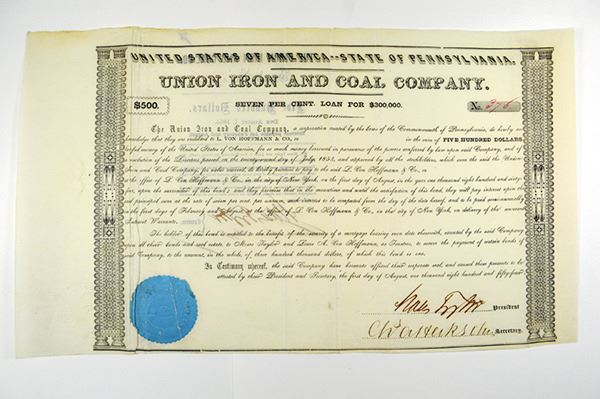 UNITED STATES OF AMERICA--STATE OF PENNSYLVANIA.
UNION IRON AND COAL COMPANY.
$500. SEVEN PER CENT. LOAN FOR $300,000. No. 376
The Union Iron and Coal Company, a corporation created by the laws of the Commonwealth of Pennsylvania, do hereby
acknowledge that they are indebted to L. VON HOFFMANN & CO., in the sum of FIVE HUNDRED DOLLARS,
lawful money of the United States of America, for so much money borrowed in pursuance of the powers conferred by law upon said Company, and of
a resolution of the Directors passed on the twenty-second day of July, 1854, and approved by all the stockholders, which sum the said the Union
Iron and Coal Company, for value received do hereby promise to pay to the said L. Von Hoffmann & Co., in
the office of L. Von Hoffmann & Co., in the city of New York, on the first day of August, in the year one thousand eight hundred and sixty-
for, upon the surrender of this bond; and they promise that in the meantime and until the satisfaction of this bond, they will pay interest upon the
said principal sum at the rate of seven per cent. per annum, such interest to be computed from the day of the date hereof, and to be paid semi-annually
on the first days of February and August in the office of L. Von Hoffmann & Co., in the city of New York, on delivery of the annexed
Interest Warrants.
The holder of this bond is entitled to the benefit of the security of a mortgage bearing even date therewith, executed by the said Company
upon all their lands and real estate, to Moses Taylor and Louis A. Von Hoffmann, as Trustees, to secure the payment of certain bonds of
said Company, to the amount, in the whole, of three hundred thousand dollars, of which this bond is one.
In Testimony whereof, the said Company have hereunto affixed their corporate seal, and caused these presents to be
attested by their President and Secretary, the first day of August, one thousand eight hundred and fifty-four.
President
Secretary.